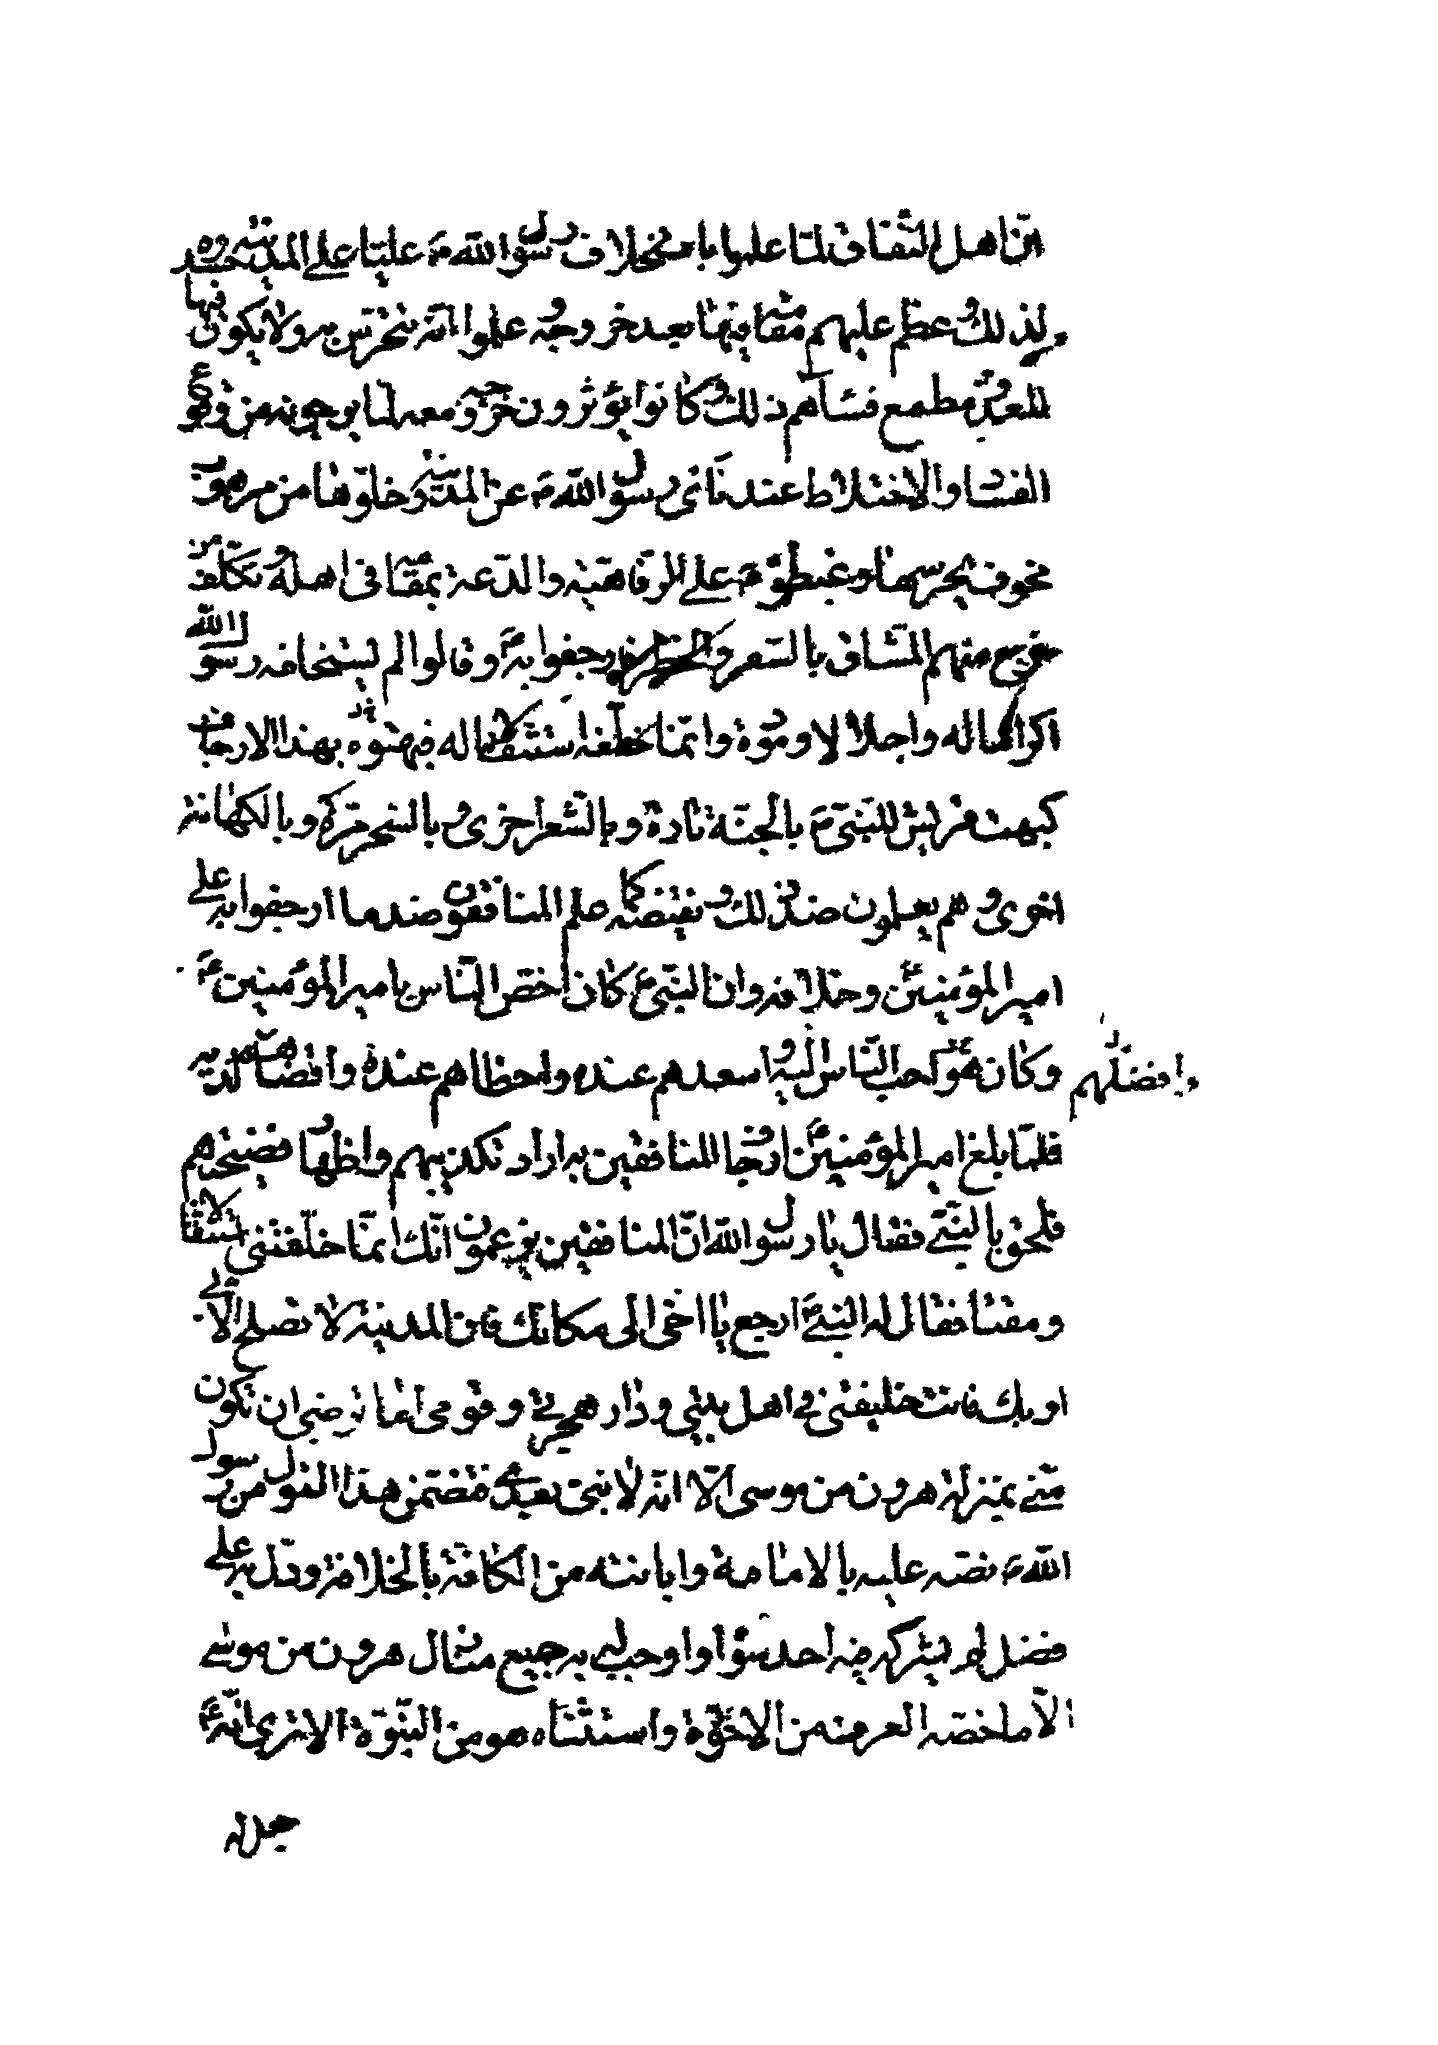 انّ اهل النّفاق لمّا علموا باستخلاف رسول اللّه ص عليّا على المدينه حسدوه
لذلك و عظم عليهم مقامه فيها بعد خروجه و علموا انّه تتحرّس به و لا يكون فيها
للعدوّ مطمع فساٰهم ذلك و كانوا يؤثرون خروجه معه لما يرجونه من وقوع
الفساد و الاختلاط عند ناى رسول اللّه ص عن المدينة و خلوّها من مرهوب
مخوف يحرسها و غبطوه ع على الرفاهيّه و الدّعة بمقامه فى اهله و تكلّف من
خرج منهم المشاق بالسّفر و الخطر فارجفوا به ع و قالوا لم يستخلفه رسول اللّه
اكراما له و اجلالا و مودّة و انّما خلّفه استثقالا له فبهتوه بهذا الارجاف
كبهت قريش للنّبىّ ص بالجنّة تارة و بالشّعر اخرى و بالسّحر مرّة و بالكهانة
اخرى و هم يعلمون ضدّ ذلك و نقيضه كما علم المنافقون ضدما ارجفوا به على
امير المؤمنين ع و خلافه و ان النّبى ع كان اخصّ النّاس بامير المؤمنين ع
و كان هو احب النّاس اليه و اسعدهم عنده و احظاهم عنده و افضلهم لديه
و افضلهم
فلمّا بلغ امير المؤمنين ع ارجاف المنافقين به اراد تكذيبهم و اظهار فضيحتهم
فلحق بالنّبىّ ع فقال يا رسول اللّه انّ المنافقين يزعمون انّك انّما خلّفتنى استثقالا
و مقتا فقال له النّبىّ ع ارجع يا اخى الى مكانك فانّ المدينة لا تصلح الّا بى
او بك فانت خليفتى فى اهل بيتى و دار هجرتى و قومى اما ترضى ان تكون
منّى بمنزلة هرون من موسى الّا انّه لا نبىّ بعدى فتضمّن هذا القول من رسول
اللّه ص نصّه عليه بالامامة و ابانته من الكافّة بالخلافة و دلّ به على
فضل لم يشركه فيه احد سواه و اوجب له به جميع منازل هرون من موسى
الّا ما خصّه العرف من الاخوّة و استثناه هو من النّبوّة الا ترى انّه ع
جعل له